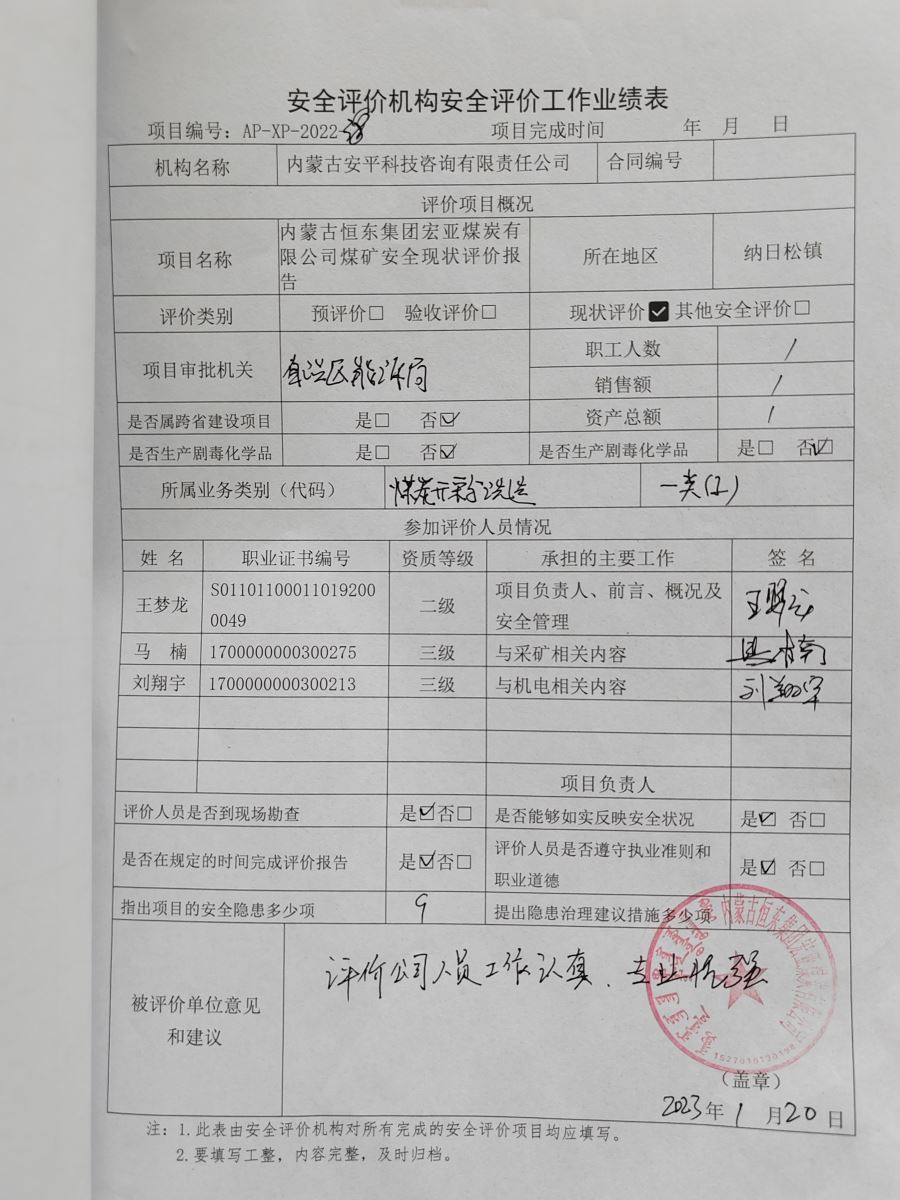 安全评价机构安全评价工作业绩表
项目编号：AP-XP-2022- 项目完成时间 年 月 日
机构名称 内蒙古安平科技咨询有限责任公司 合同编号
评价项目概况
项目名称 内蒙古恒东集团宏亚煤炭有限公司煤矿安全现状评价报告 所在地区 纳日松镇
评价类别 预评价□ 验收评价□ 现状评价☑ 其他安全评价□
项目审批机关 能源局 职工人数 /
销售额 /
是否属跨省建设项目 是□ 否☑ 资产总额 /
是否生产剧毒化学品 是□ 否☑ 是否生产剧毒化学品 是□ 否☑
所属业务类别（代码） 煤炭开采洗选 一类(1)
参加评价人员情况
姓 名 职业证书编号 资质等级 承担的主要工作 签 名
王梦龙 S011011000110192000049 二级 项目负责人、前言、概况及安全管理 王梦龙
马 楠 1700000000300275 三级 与采矿相关内容 马楠
刘翔宇 1700000000300213 三级 与机电相关内容 刘翔宇
项目负责人
评价人员是否到现场勘查 是☑否□ 是否能够如实反映安全状况 是☑ 否□
是否在规定的时间完成评价报告 是☑否□ 评价人员是否遵守执业准则和职业道德 是☑ 否□
指出项目的安全隐患多少项 9 提出隐患治理建议措施多少项
被评价单位意见和建议 评价公司人员工作认真、专业性强
（盖章）
2023年 1 月20 日
注：1.此表由安全评价机构对所有完成的安全评价项目均应填写。
2.要填写工整，内容完整，及时归档。